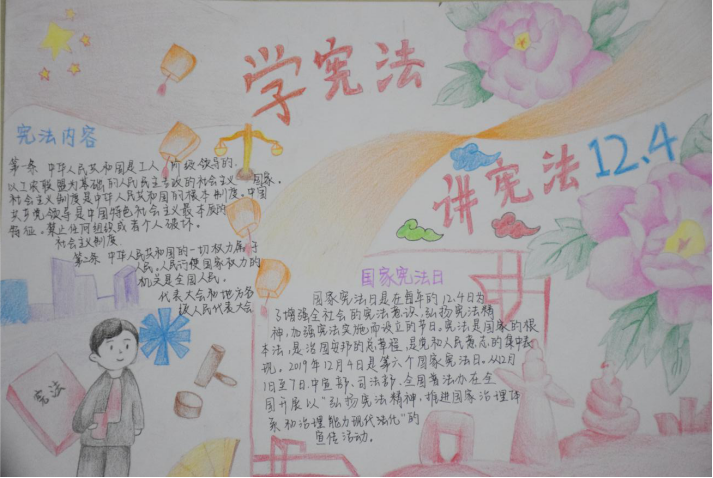 学宪法
讲宪法 12.4
宪法内容
第一条 中华人民共和国是工人阶级领导的、
以工农联盟为基础的人民民主专政的社会主义国家。
社会主义制度是中华人民共和国的根本制度。中国
共产党领导是中国特色社会主义最本质的
特征。禁止任何组织或者个人破坏
社会主义制度。
第二条 中华人民共和国的一切权力属于
人民。人民行使国家权力的
机关是全国人民
代表大会和地方各
级人民代表大会
宪法
国家宪法日
国家宪法日是在每年的12.4日为
了增强全社会的宪法意识、弘扬宪法精
神、加强宪法实施而设立的节日。宪法是国家的根
本法,是治国安邦的总章程,是党和人民意志的集中表
现。2019年12月4日是第六个国家宪法日。从12月
1日至7日,中宣部、司法部、全国普法办在全
国开展以“弘扬宪法精神,推进国家治理体
系和治理能力现代法化”的
宣传活动。